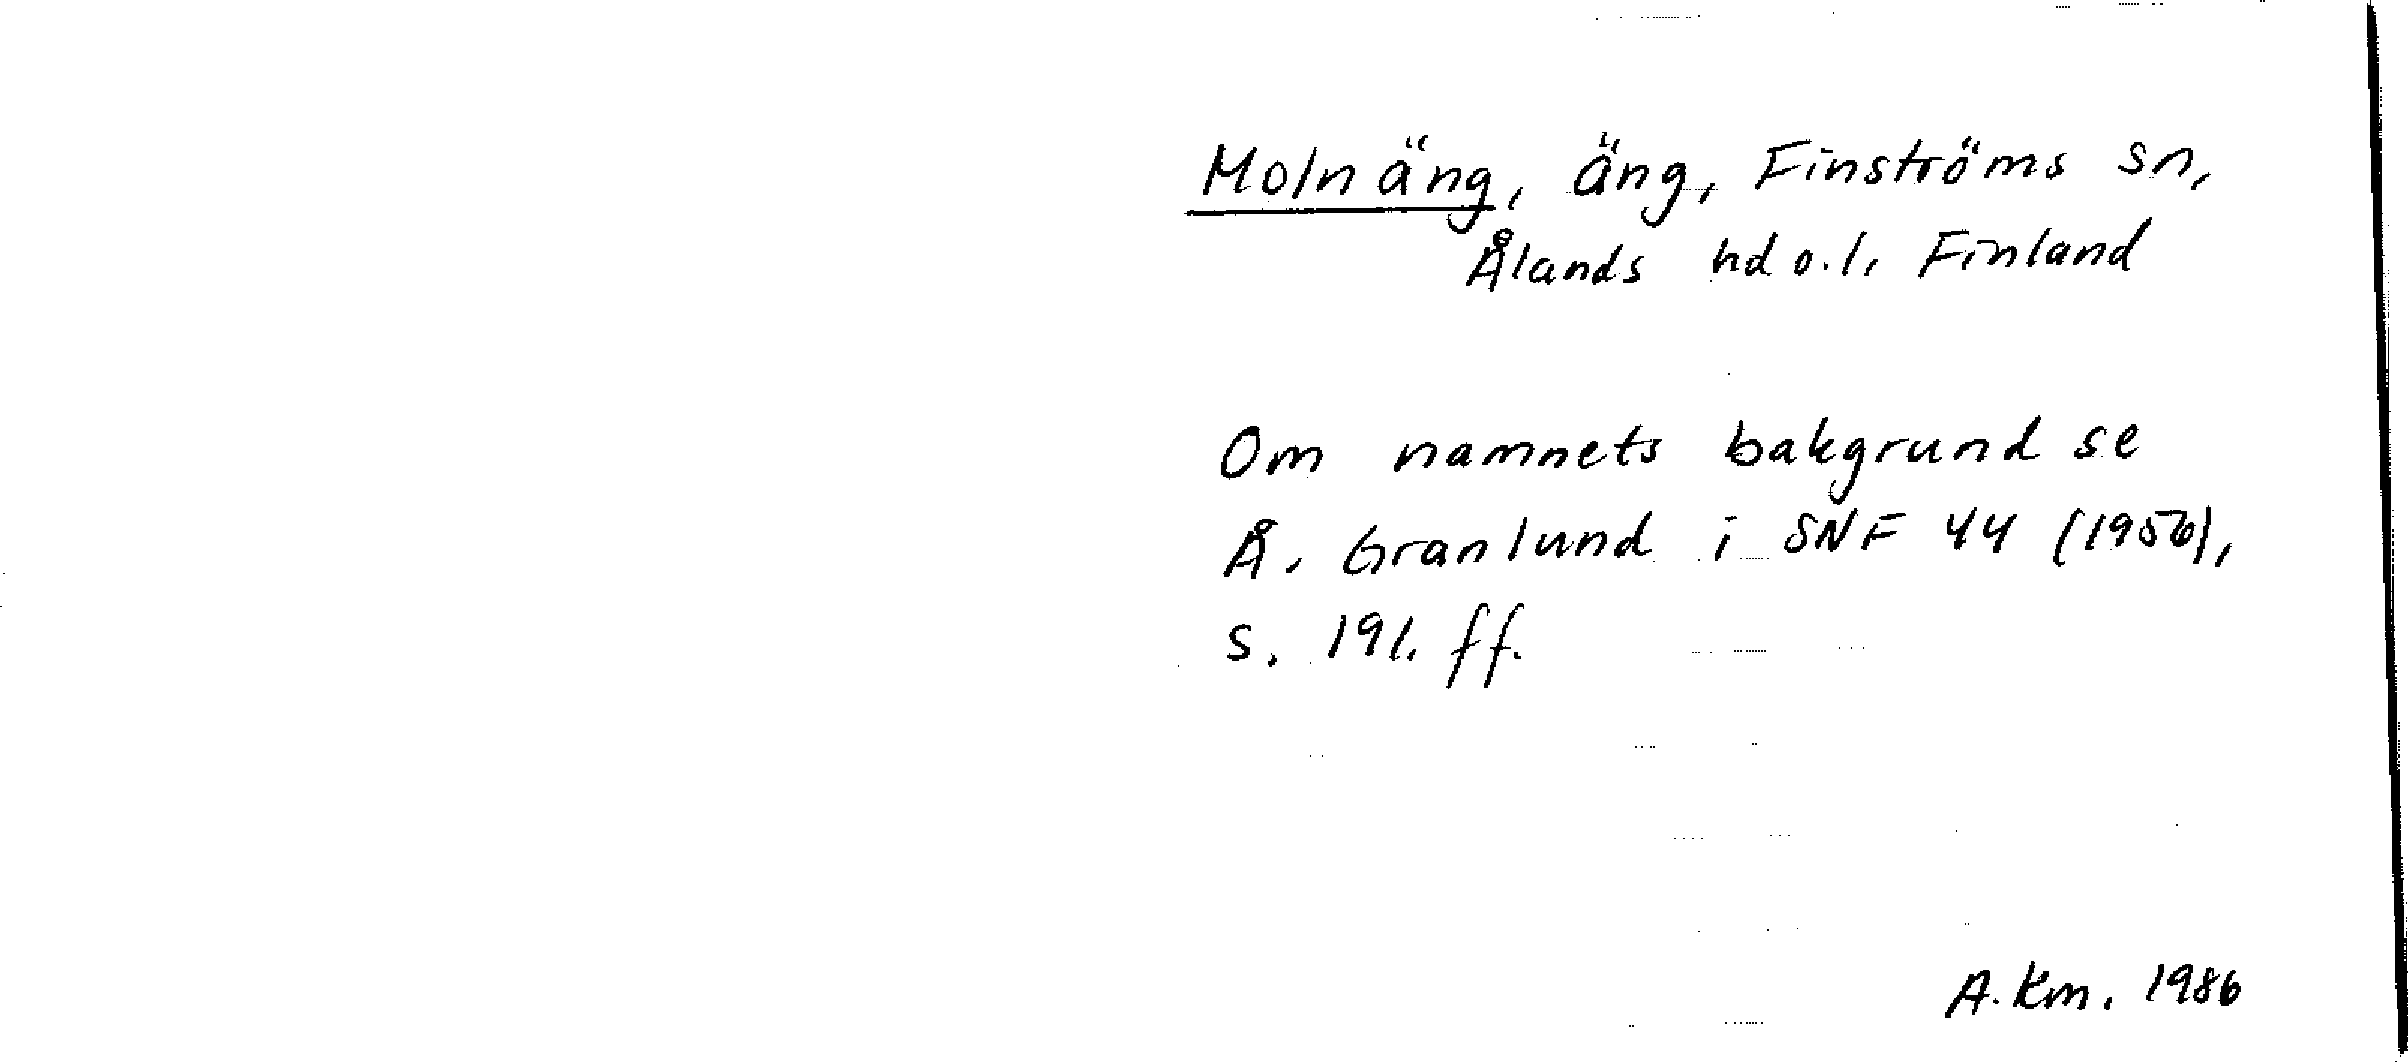 Molnäng, äng, Finströms sn,
Ålands hd o. l, Finland
Om namnets bakgrund se
Å. Granlund i SNF 44 (1956),
s. 191. ff.
A. Km. 1986